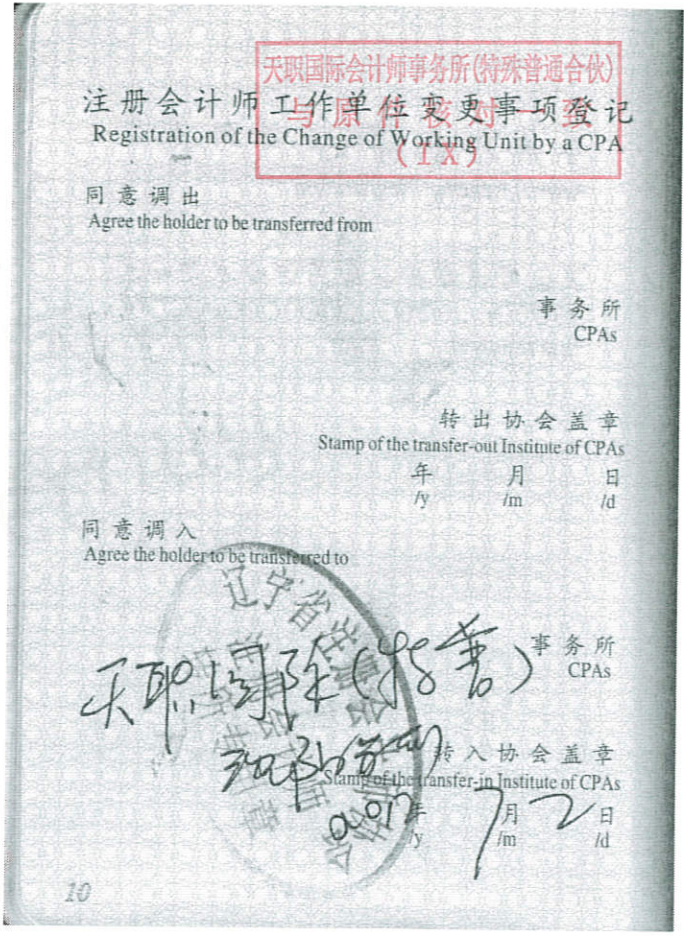 天职国际会计师事务所(特殊普通合伙)
与原件核对一致
(IX)
注册会计师工作单位变更事项登记
Registration of the Change of Working Unit by a CPA
同意调出
Agree the holder to be transferred from
事务所
CPAs
转出协会盖章
Stamp of the transfer-out Institute of CPAs
年 月 日
/y /m /d
同意调入
Agree the holder to be transferred to
辽宁省注册会计师协会
天职国际(特普)
事务所
CPAs
沈阳分所
转入协会盖章
Stamp of the transfer-in Institute of CPAs
2017年 7月 2日
/y /m /d
10